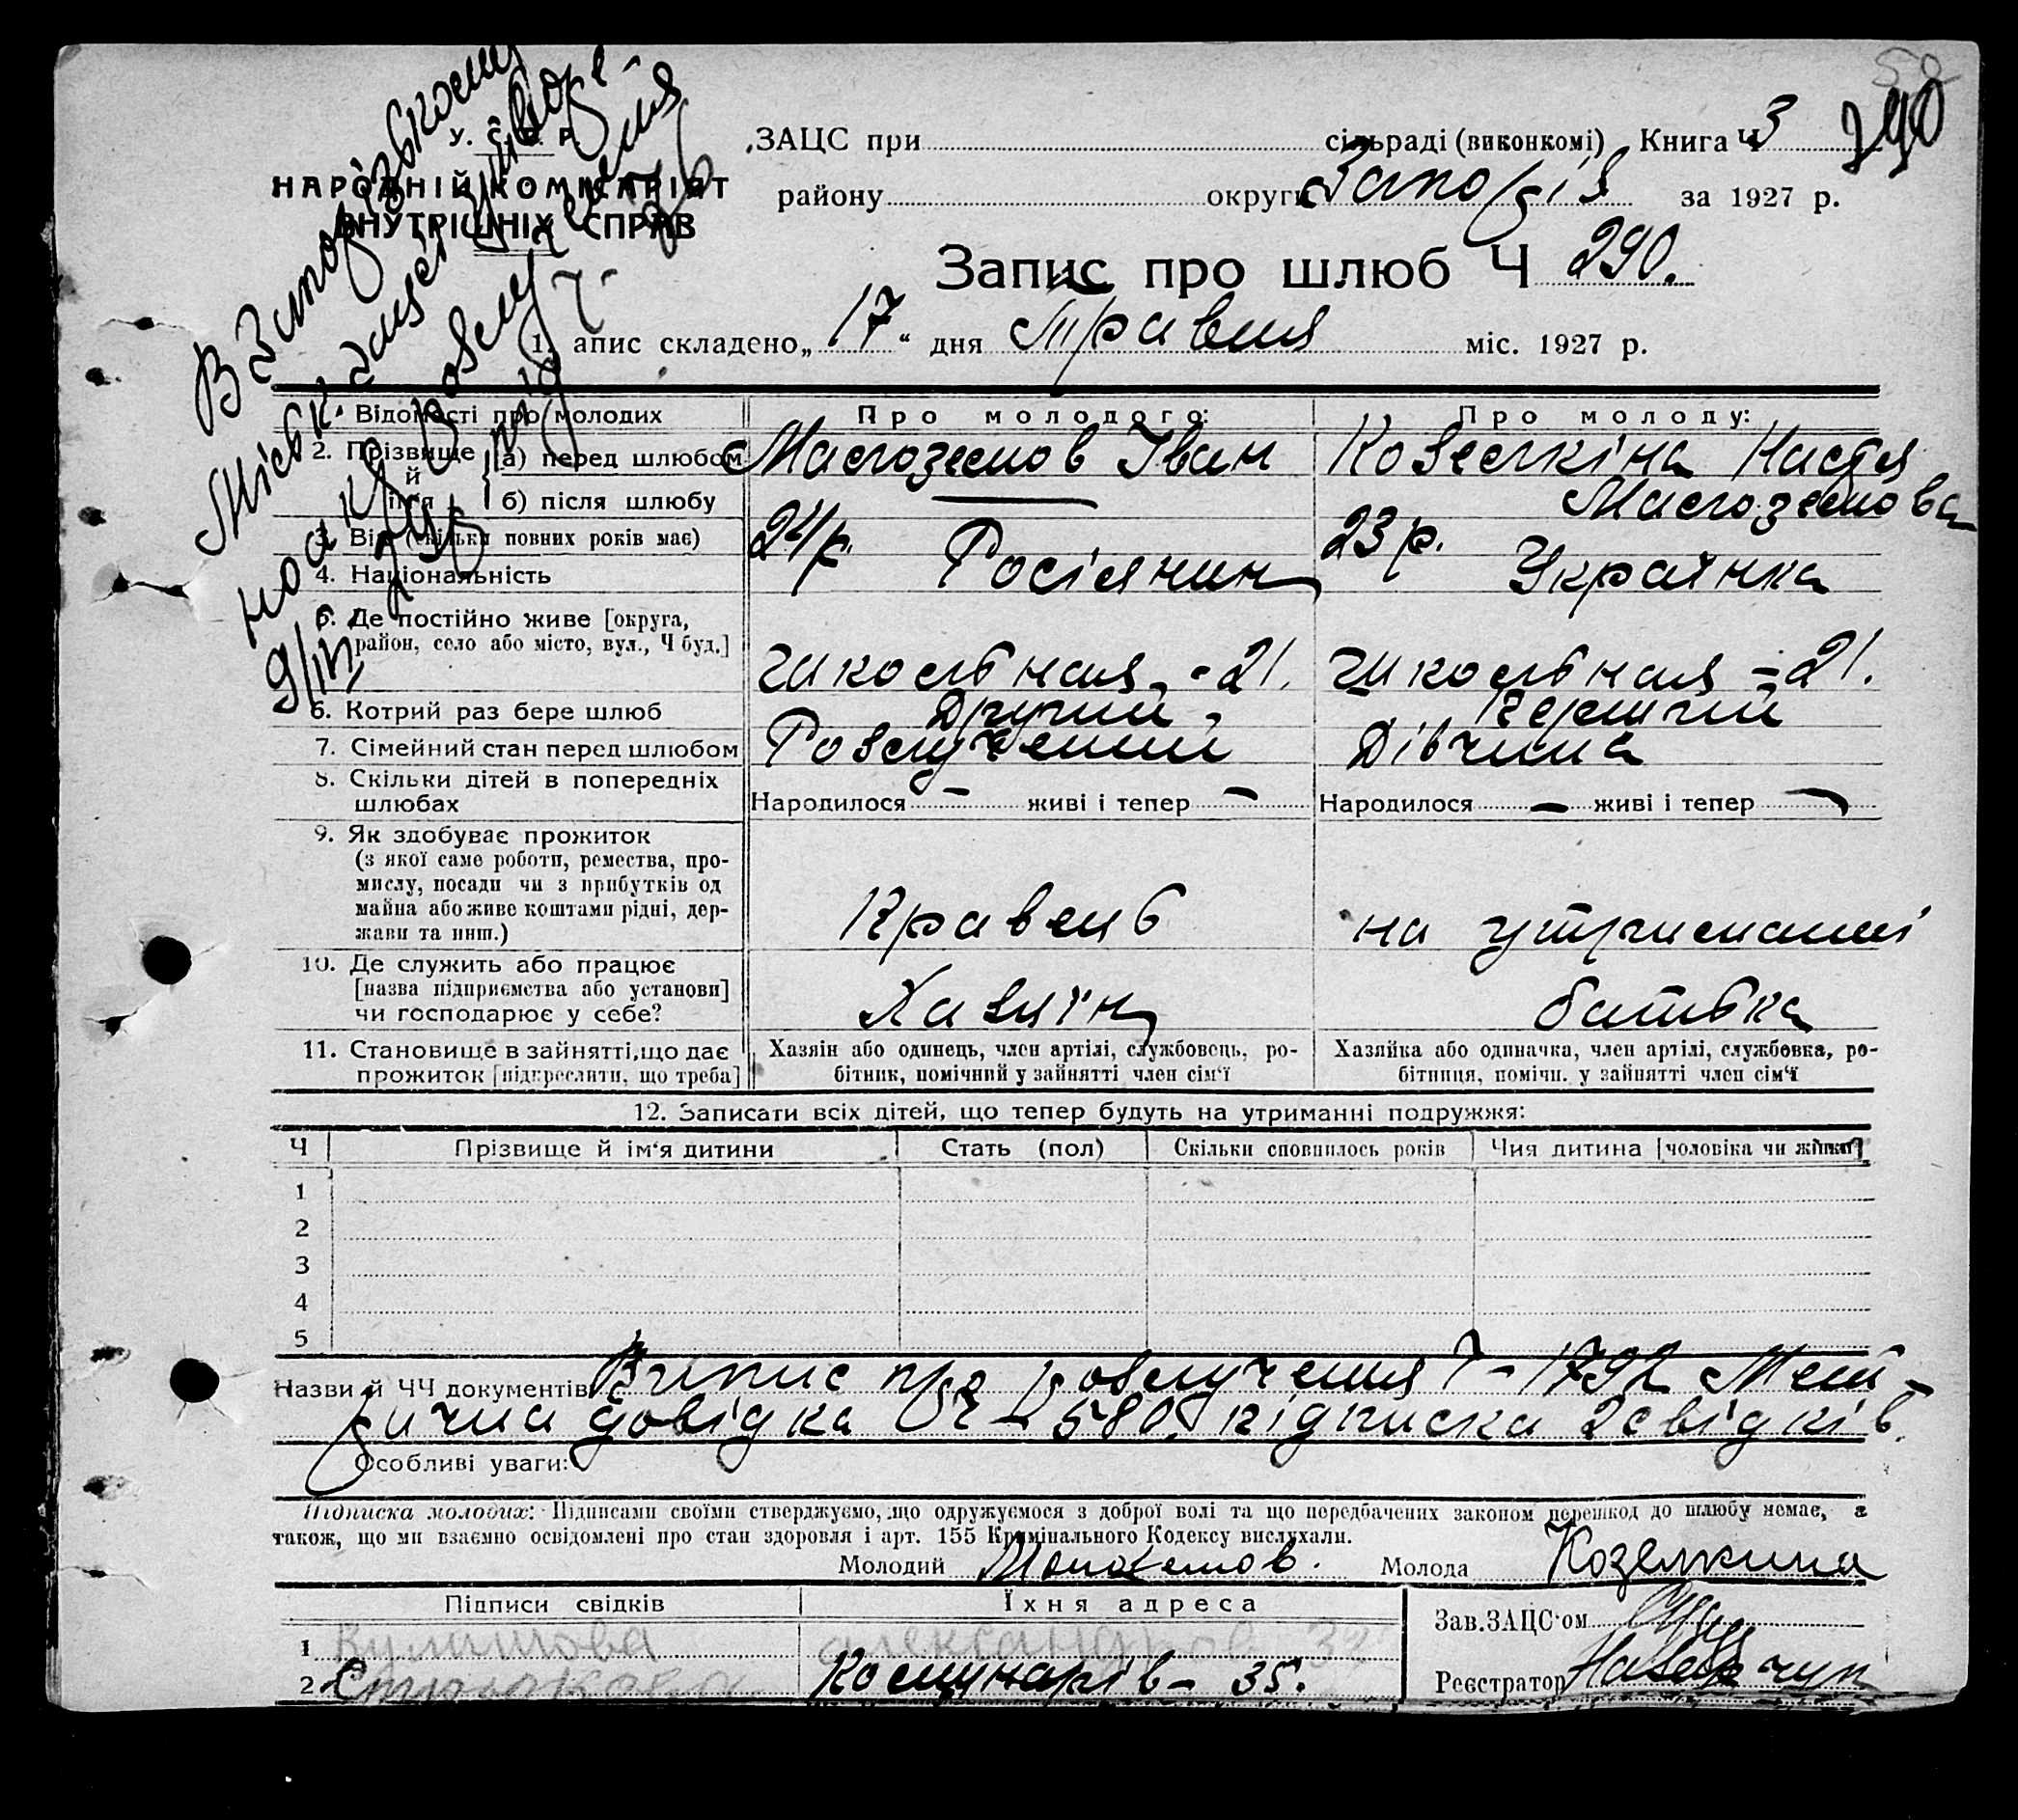 290
У. С. Р. Р.
НАРОДНІЙ КОМІСАРІЯТ
ВНУТРІШНІХ СПРАВ
ЗАЦС при сільраді (виконкомі) Книга Ч 3
району округи Запоріз за 1927 р.
Запис про шлюб Ч 290.
1. Запис складено „17“ дня Травня міс. 1927 р.
В Запорізькому
Міськ.
Відомості про молодих Про молодого: Про молоду:
2. Прізвище й ім'я а) перед шлюбом Іван Козелкіна Настя
б) після шлюбу
3. Вік (скільки повних років має) 24 р. 23 р.
4. Національність Росіянин Українка
5. Де постійно живе [округа,
район, село або місто, вул., Ч буд.]
Школьная - 21. Школьная - 21.
6. Котрий раз бере шлюб Другий Перший
7. Сімейний стан перед шлюбом Розлучений Дівчина
8. Скільки дітей в попередніх
шлюбах Народилося — живі і тепер — Народилося — живі і тепер —
9. Як здобуває прожиток
(з якої саме роботи, ремества, про-
мислу, посади чи з прибутків од
майна або живе коштами рідні, дер-
жави та инш.) Кравець на утриманні
10. Де служить або працює
[назва підприємства або установи]
чи господарює у себе? Хазяїн батька
11. Становище в зайнятті, що дає
прожиток [підкреслити, що треба]
Хазяїн або одинець, член артілі, службовець, ро-
бітник, помічний у зайнятті член сім'ї
Хазяйка або одиначка, член артілі, службовка, ро-
бітниця, помічн. у зайнятті член сім'ї
12. Записати всіх дітей, що тепер будуть на утриманні подружжя:
Ч Прізвище й ім'я дитини Стать (пол) Скільки сповнилось років Чия дитина [чоловіка чи жінки]
1
2
3
4
5
Назви й ЧЧ документів: Випис про розлучення Ч - 1792 Меди-
чна довідка Ч 580. підписка 2 свідків.
Особливі уваги:
Підписка молодих: Підписами своїми стверджуємо, що одружуємося з доброї волі та що передбачених законом перешкод до шлюбу немає, а
також, що ми взаємно освідомлені про стан здоровля і арт. 155 Кримінального Кодексу вислухали.
Молодий Молода Козелкина
Підписи свідків Їхня адреса
Зав. ЗАЦС'ом
1 Кулашова 32
2 Комунарів - 35.
Реєстратор